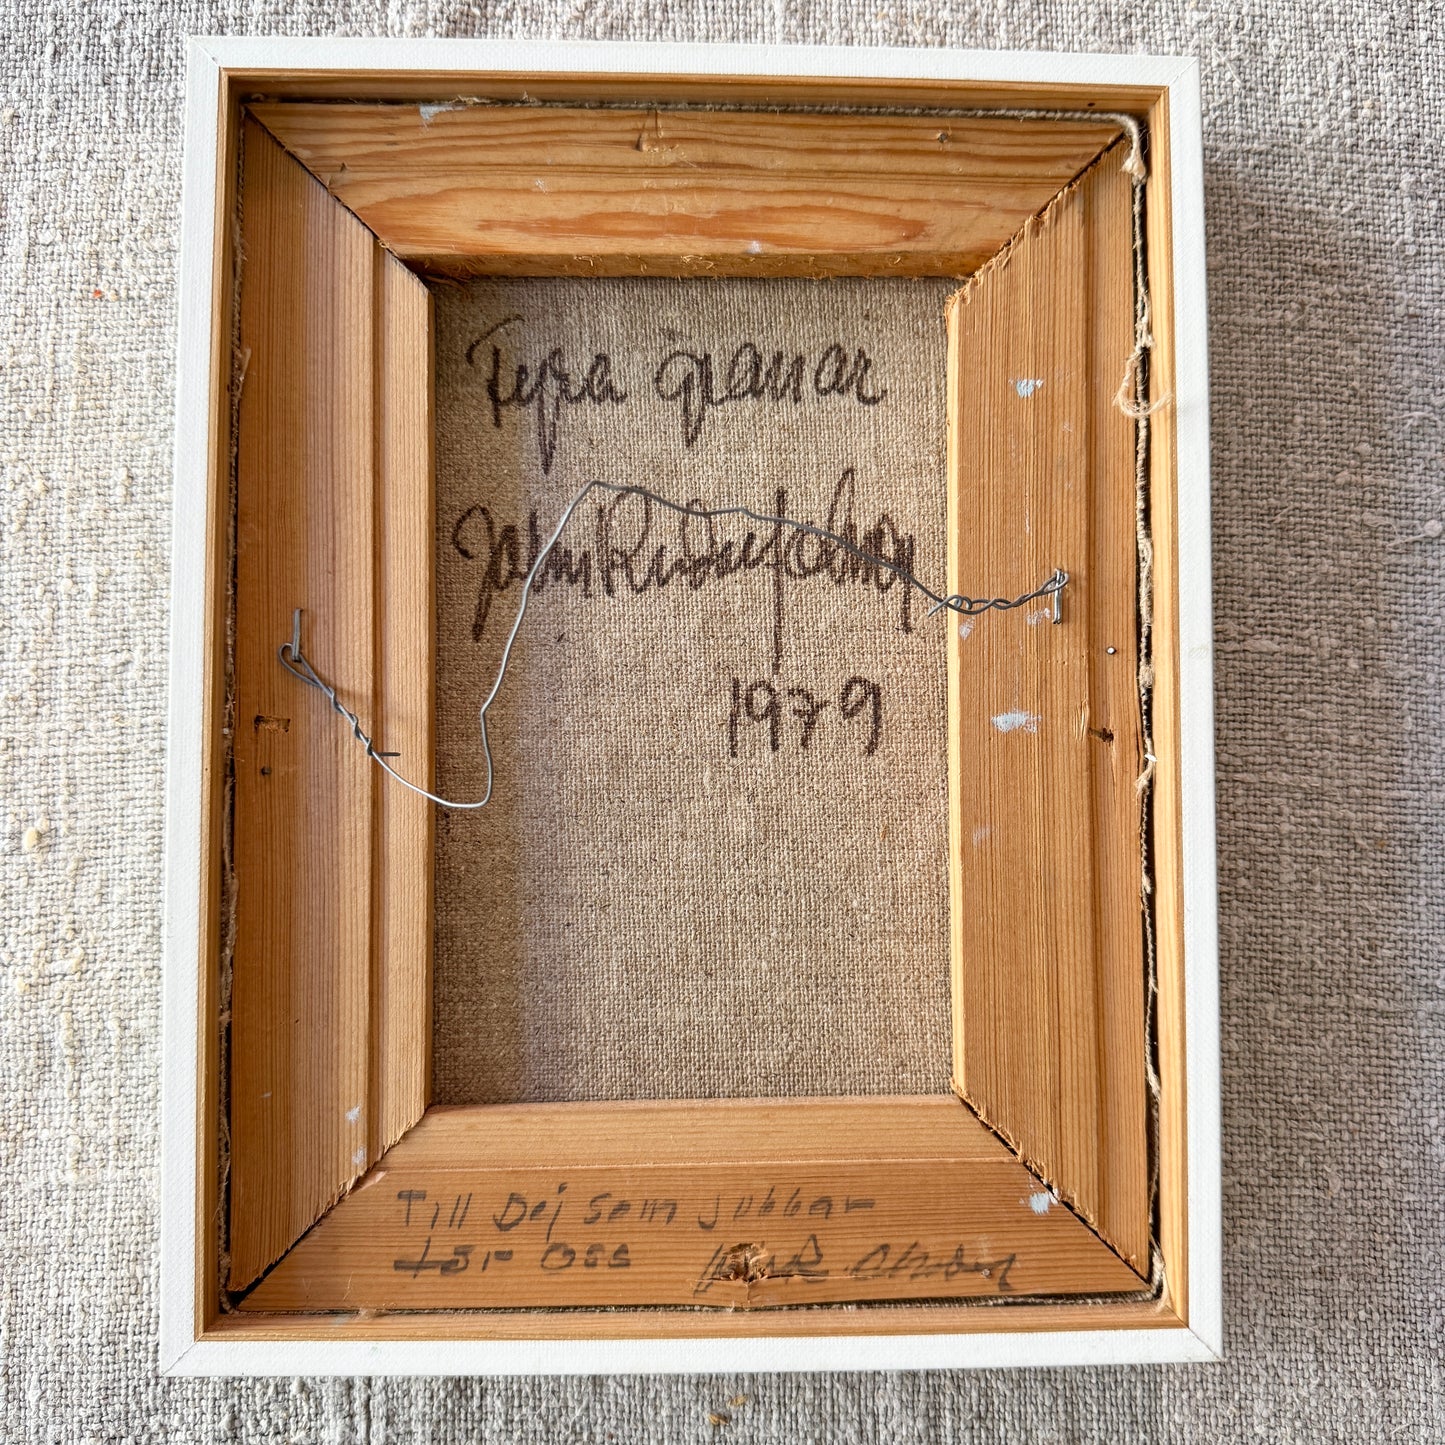 Fyra granar
John Rudolf
1979
Till Dej som jobbar
för Oss